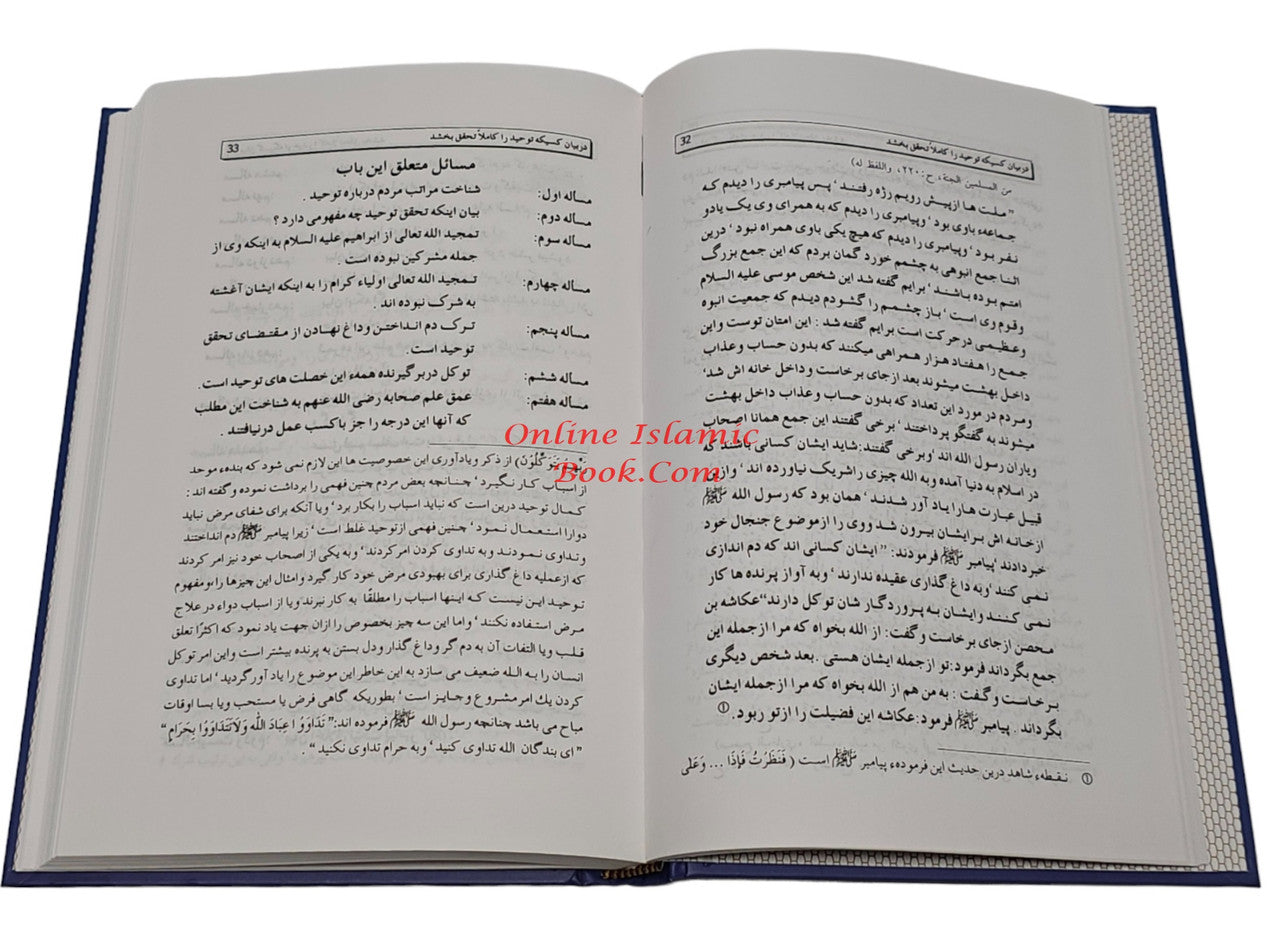 32
دربیان کسیکه توحید را کاملاً تحقق بخشد
من المسلمین الجنة، ح:٢٢٠، واللفظ له)
"ملت ها ازپیش رویم رژه رفتند ‘ پس پیامبری را دیدم که
جماعهء باوی بود ‘ وپیامبری را دیدم که به همرای وی یک یادو
نفر بود ‘ وپیامبری را دیدم که هیچ یکی باوی همراه نبود ‘ درین
اثنا جمع انبوهی به چشمم خورد گمان بردم که این جمع بزرگ
امتم بوده باشند ‘ برایم گفته شد این شخص موسی علیه السلام
وقوم وی است ‘ باز چشمم را گشودم دیدم که جمعیت انبوه
وعظیمی درحرکت است برایم گفته شد : این امتان توست واین
جمع را هفتاد هزار همراهی میکنند که بدون حساب وعذاب
داخل بهشت میشوند بعد ازجای برخاست وداخل خانه اش شد‘
ومردم در مورد این تعداد که بدون حساب وعذاب داخل بهشت
میشوند به گفتگو پرداختند ‘ برخی گفتند این جمع همانا اصحاب
ویاران رسول الله اند ‘وبرخی گفتند:شاید ایشان کسانی باشند که
در اسلام به دنیا آمده وبه الله چیزی راشریک نیاورده اند ‘ وازین
قبیل عبارت هارا یاد آور شدند‘ همان بود که رسول الله ﷺ
ازخانه اش برایشان بیرون شد ووی را ازموضوع جنجال خود
خبردادند ‘پیامبر ﷺ فرمودند: " ایشان کسانی اند که دم اندازی
نمی کنند ‘وبه داغ گذاری عقیده ندارند ‘ وبه آواز پرنده ها کار
نمی کنند وایشان به پروردگار شان توکل دارند"عکاشه بن
محصن ازجای برخاست وگفت: از الله بخواه که مرا ازجمله این
جمع بگرداند فرمود: تو ازجمله ایشان هستی . بعد شخص دیگری
برخاست وگفت : به من هم از الله بخواه که مرا ازجمله ایشان
بگرداند . پیامبر ﷺ فرمود: عکاشه این فضیلت را ازتو ربود . ①
① نقطهء شاهد درین حدیث این فرمودهء پیامبر ﷺ است ( فَنَظَرْتُ فَإِذَا ... وَعَلی
33
دربیان کسیکه توحید را کاملاً تحقق بخشد
مسائل متعلق این باب
مساله اول: شناخت مراتب مردم درباره توحید .
مساله دوم: بیان اینکه تحقق توحید چه مفهومی دارد ؟
مساله سوم: تمجید الله تعالی از ابراهیم علیه السلام به اینکه وی از
جمله مشرکین نبوده است .
مساله چهارم: تمجید الله تعالی اولیاء کرام را به اینکه ایشان آغشته
به شرک نبوده اند .
مساله پنجم: ترک دم انداختن وداغ نهادن از مقتضای تحقق
توحید است .
مساله ششم: توکل دربرگیرنده همهء این خصلت های توحید است .
مساله هفتم: عمق علم صحابه رضی الله عنهم به شناخت این مطلب
که آنها این درجه را جز باکسب عمل درنیافتند .
یَتَوَكَّلُوْنَ) از ذکر ویادآوری این خصوصیت ها این لازم نمی شود که بنده موحد
از اسباب کار نگیرد ‘ چنانچه بعض مردم چنین فهمی را برداشت نموده وگفته اند :
کمال توحید درین است که نباید اسباب را بکار برد ‘ ویا آنکه برای شفای مرض نباید
دوارا استعمال نمود‘ چنین فهمی ازتوحید غلط است ‘ زیرا پیامبر ﷺ دم انداختند
وتداوی نمودند وبه تداوی کردن امرکردند ‘ وبه یکی از اصحاب خود نیز امر کردند
که ازعملیه داغ گذاری برای بهبودی مرض خود کار گیرد وامثال این چیزها را،ومفهوم
توحید این نیست که اینها اسباب را مطلقًا به کار نبرند ویا از اسباب دواء در علاج
مرض استفاده نکنند ‘ واما این سه چیز بخصوص را ازان جهت یاد نمود که اکثرًا تعلق
قلب ویا التفات آن به دم گر وداغ گذار ودل بستن به پرنده بیشتر است واین امر توکل
انسان را به الله ضعیف می سازد به این خاطر این موضوع را یاد آورگردید ‘ اما تداوی
کردن یك امر مشروع وجایز است ‘ بطوریکه گاهی فرض یا مستحب ویا بسا اوقات
مباح می باشد چنانچه رسول الله ﷺ فرموده اند:" تَدَاوَوْا عِبَادَ اللّٰه وَلاَتَتَدَاوَوْا بِحَرَامٍ "
"ای بندگان الله تداوی کنید ‘ وبه حرام تداوی نکنید " .
Online Islamic
Book.Com